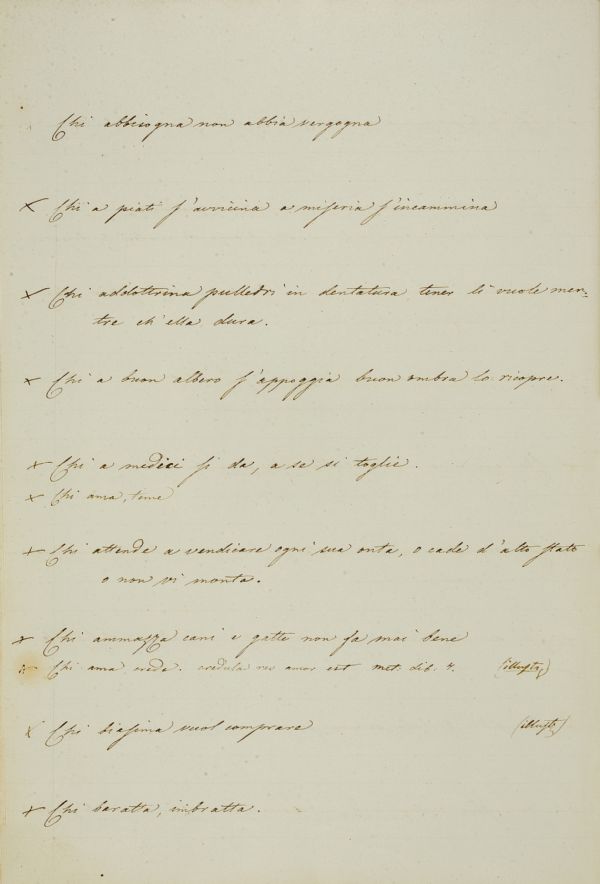 Chi abbisogna non abbia vergogna
x Chi a piati s'avvicina a miseria s'incammina
x Chi addottrina pulledri in dentatura tener li vuole men=
tre ch'ella dura.
x Chi a buon albero s'appoggia buon ombra lo ricopre.
x Chi a medici si da, a se si toglie.
x Chi ama, teme
x Chi attende a vendicare ogni sua onta, o cade d'alto stato
o non vi monta.
x Chi ammazza cani e gatte non fa mai bene
x Chi ama crede. credula res amor est met. lib. (illust)
x Chi biasima vuol comprare (illust)
x Chi baratta, imbratta.